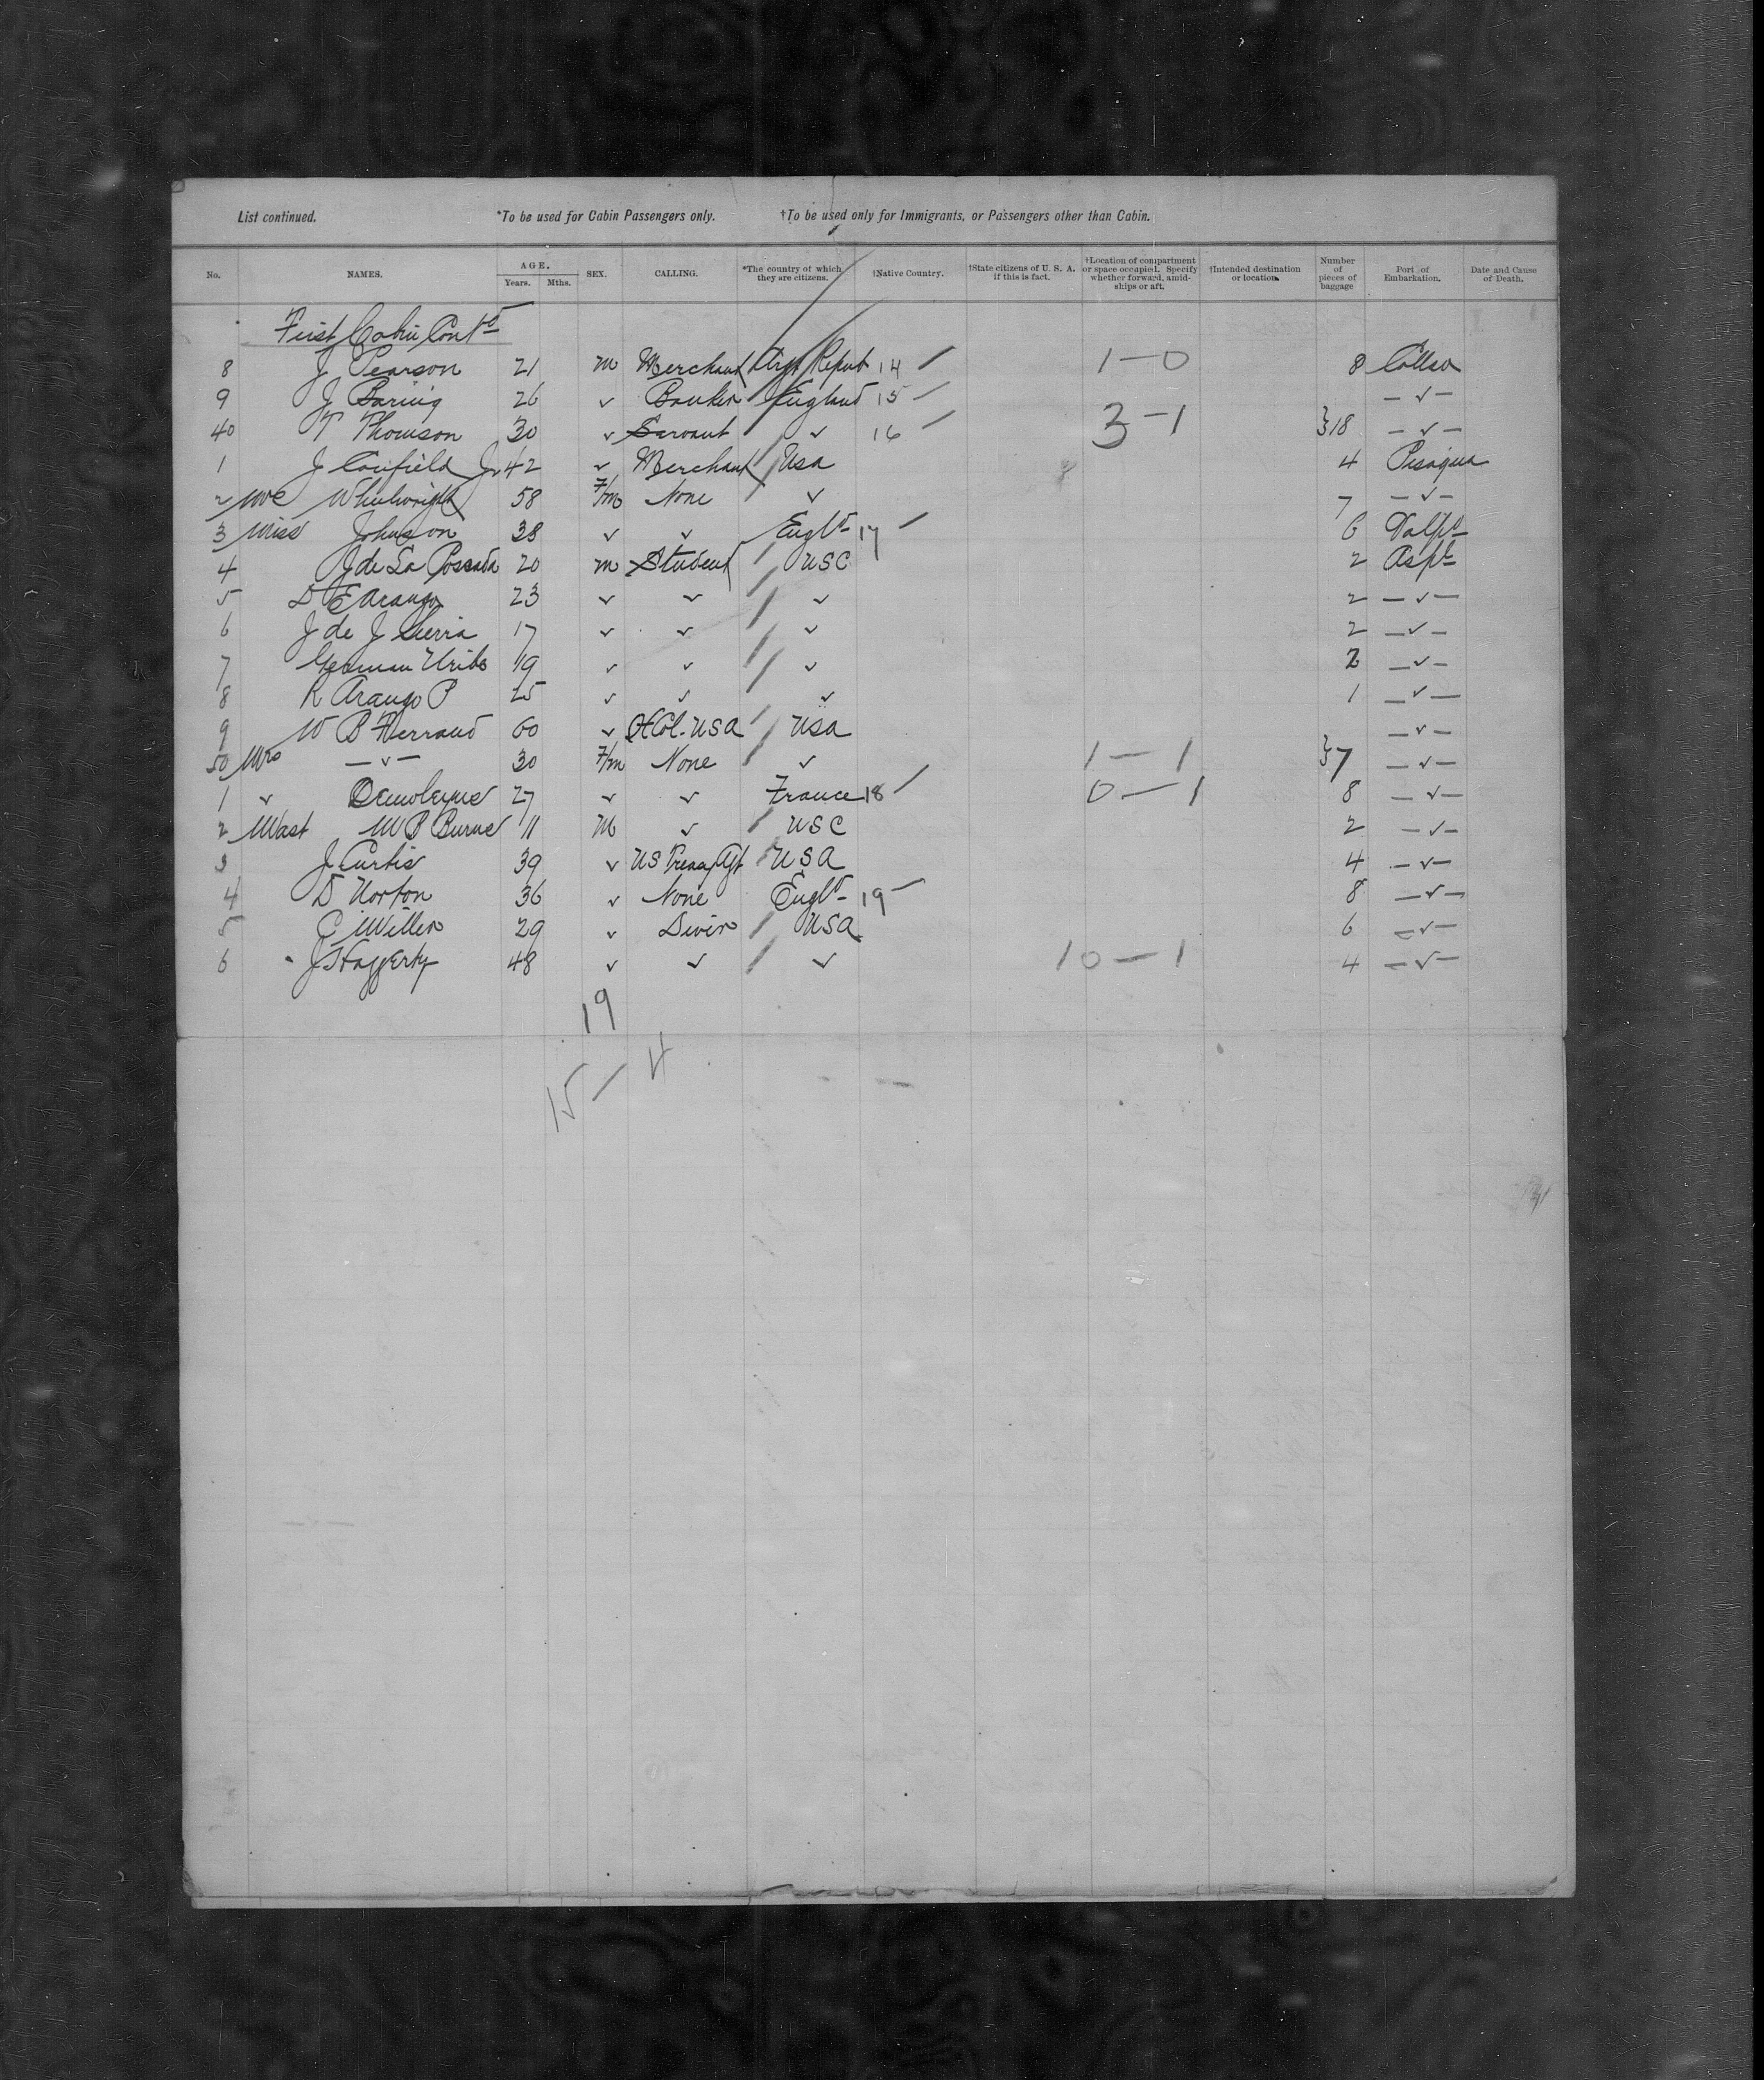 List continued. *To be used for Cabin Passengers only. †To be used only for Immigrants, or Passengers other than Cabin.
No. NAMES. AGE. Years. Mths. SEX. CALLING. *The country of which they are citizens. †Native Country. †State citizens of U. S. A. if this is fact. †Location of compartment or space occupied. Specify whether forward, amidships or aft. †Intended destination or location. Number of pieces of baggage Port of Embarkation. Date and Cause of Death.
First Cabin Contd
8 J Pearson 21 M Merchant Arg Repub 14 / 1-0 8 Callao
9 J Baring 26 ✓ Banker England 15 / -✓-
40 T Thomson 30 ✓ Servant ✓ 16 / 3-1 }18 -✓-
1 J Jr 42 ✓ Merchant Usa 4 Pisagua
2 58 F/m None ✓ 7 -✓-
3 Miss Johnson 38 ✓ ✓ Engld 17 / 6 Valpo
4 J de La Possada 20 M Student USC 2 Aspl
5 D E Arango 23 ✓ ✓ ✓ 2 -✓-
6 J de J Sierra 17 ✓ ✓ ✓ 2 -✓-
7 German Uribe 19 ✓ ✓ ✓ 2 -✓-
8 R Arango P 25 ✓ ✓ ✓ 1 -✓-
9 W B 60 ✓ Col. USA Usa -✓-
50 Mrs -✓- 30 F/m None ✓ 1-1 }7 -✓-
1 ✓ 27 ✓ ✓ France 18 / 0-1 8 -✓-
2 Mast M P Burns 11 M ✓ USC 2 -✓-
3 J Curtis 39 ✓ US Treas Agt USA 4 -✓-
4 D Norton 36 ✓ None Engld 19 - 8 -✓-
5 C Miller 29 ✓ Diver USA 6 -✓-
6 J Haggerty 48 ✓ ✓ ✓ 10-1 4 -✓-
19
15-4